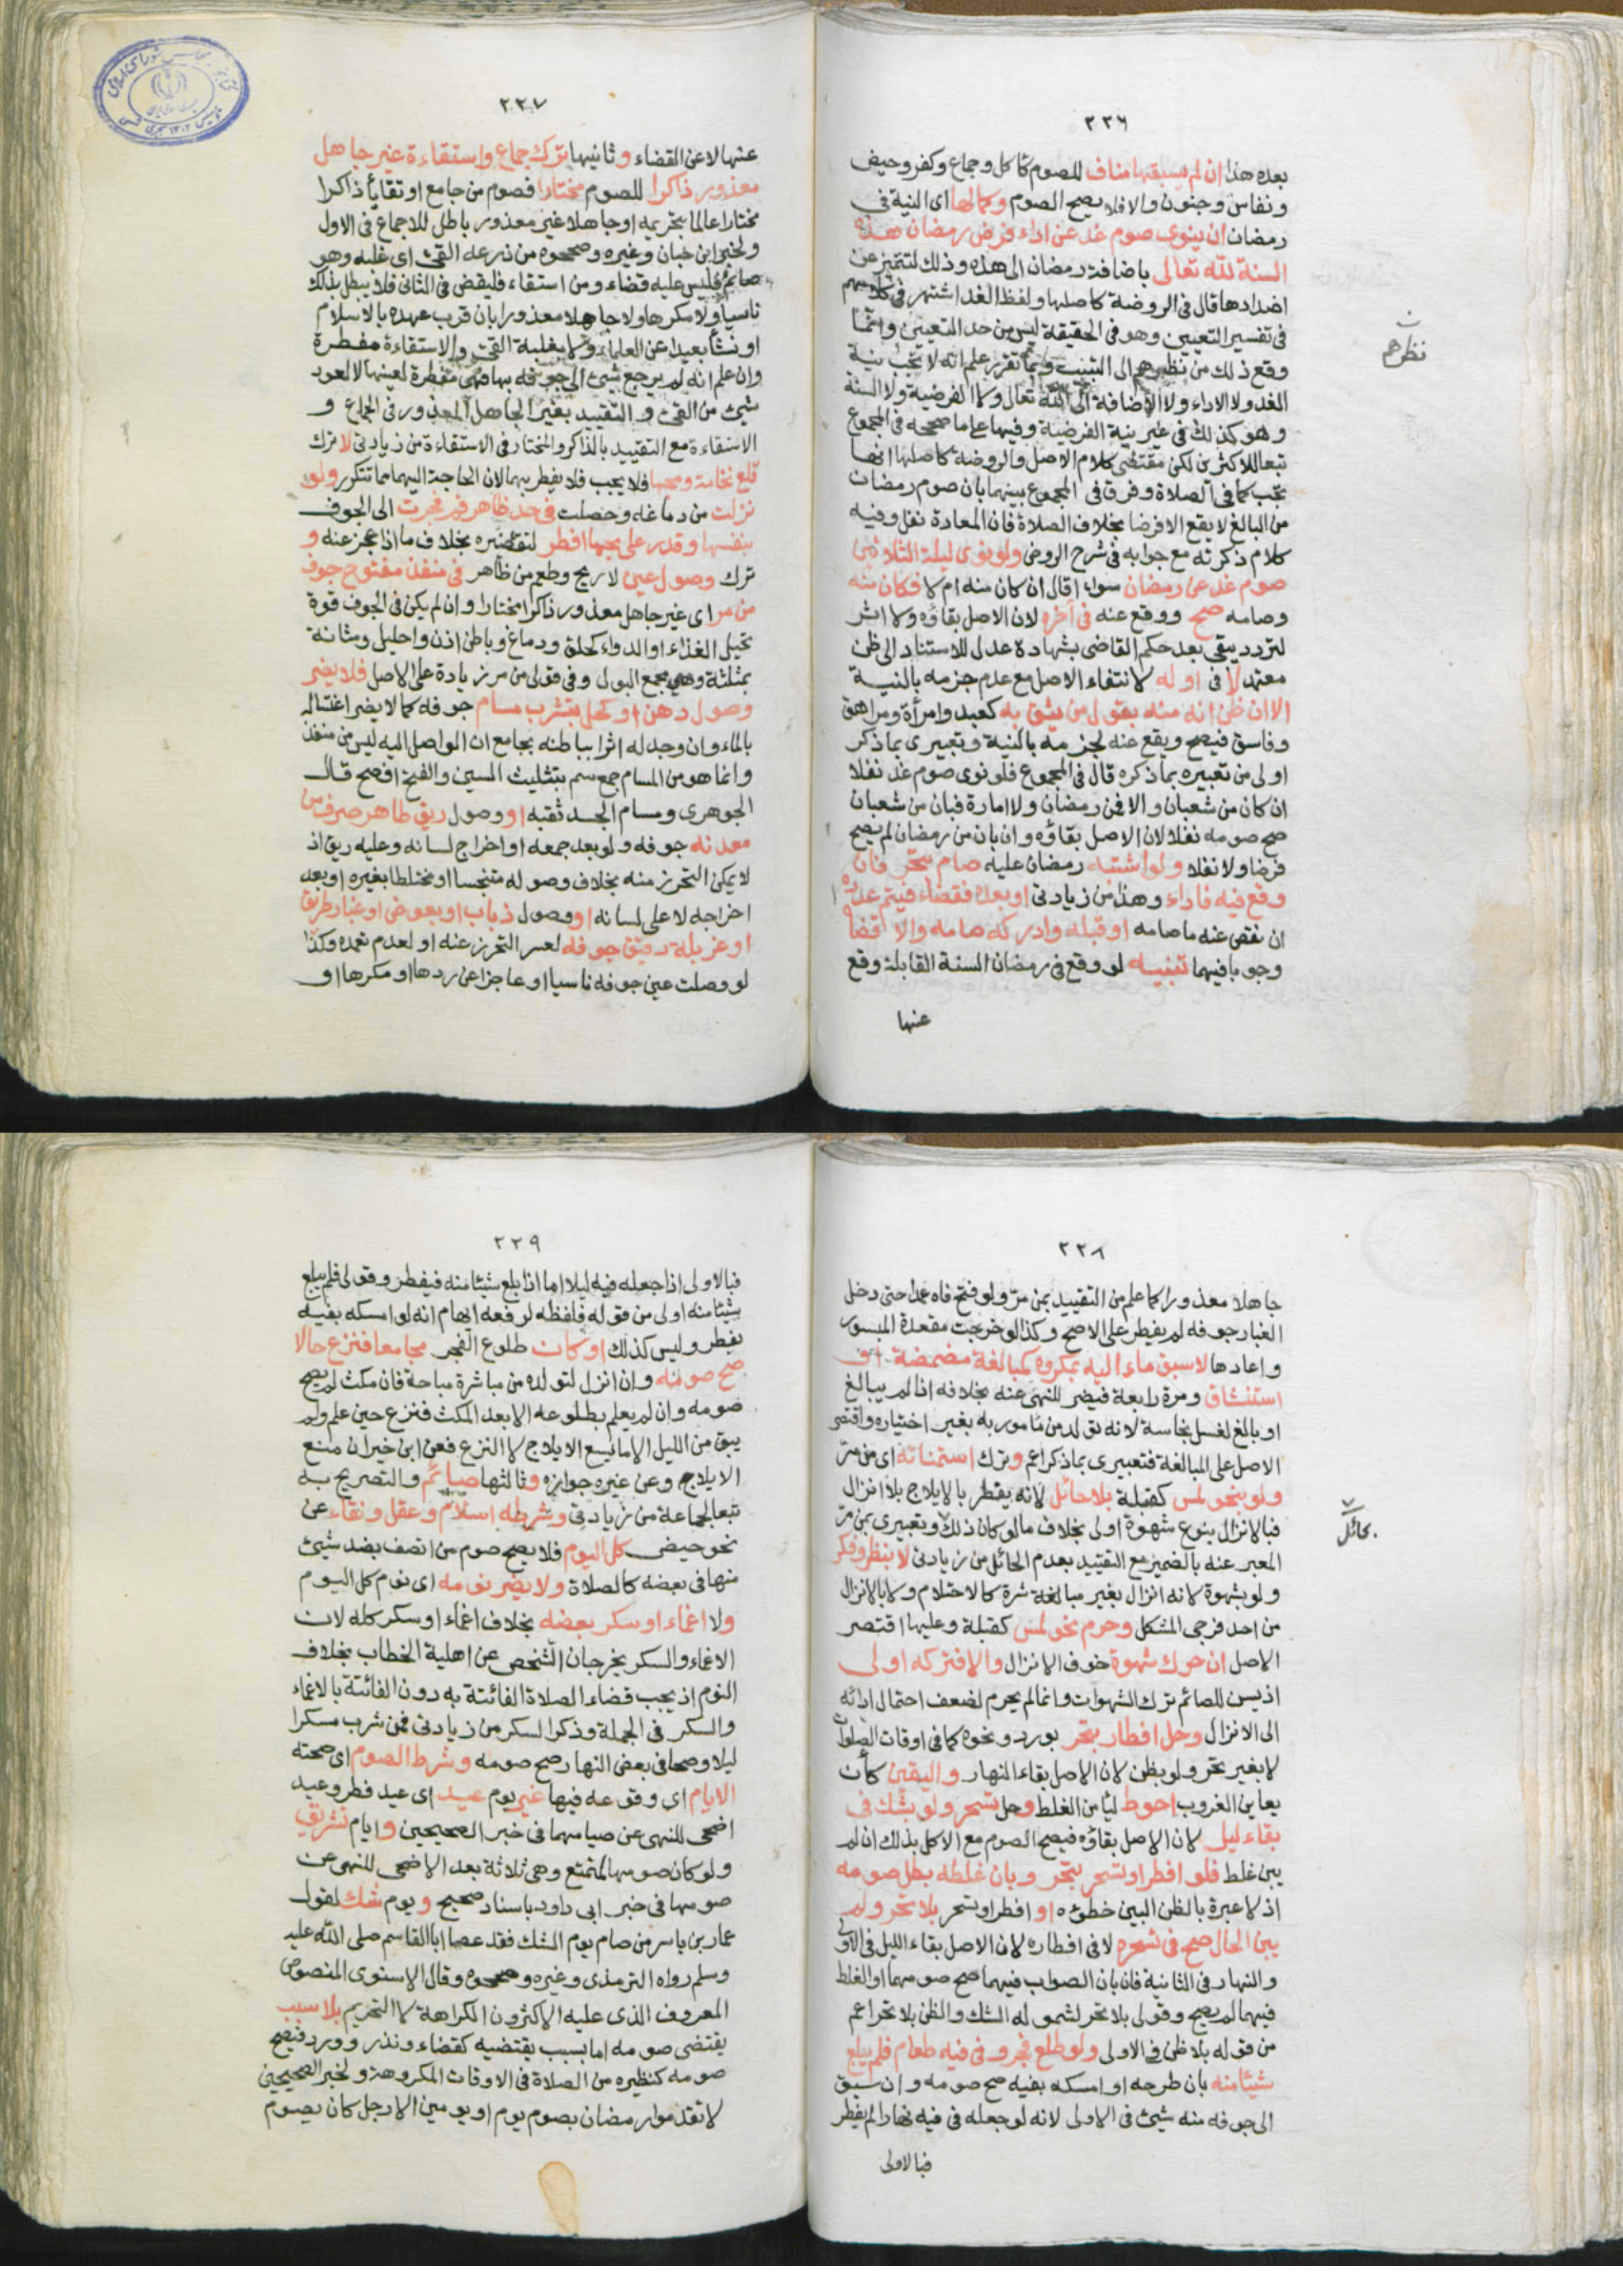 ٢٢٦
بعده هذا ان لم يسبقها مناف للصوم كاكل وجماع وكفر وحيض
ونفاس وجنون والا فلا يصح الصوم وكمالها اى النية فى
رمضان ان ينوى صوم غد عن اداء فرض رمضان هذه
السنة لله تعالى باضافة رمضان الى هذه وذلك لتتميز عن
اضدادها قال فى الروضة كاصلها ولفظ الغد اشتهر فى كلامهم
فى تفسير التعيين وهو فى الحقيقة ليس من حد التعيين وانما
وقع ذلك من نظرهم الى التبييت وبما تقرر علم انه لا تجب نية
الغد ولا الاداء ولا الاضافة الى الله تعالى ولا الفرضية ولا السنة
وهو كذلك فى غير نية الفرضية وفيها على ما صححه فى المجموع
تبعا للاكثرين لكن مقتضى كلام الاصل والروضة كاصلها انها
تجب كما فى الصلاة وفرق فى المجموع بينهما بان صوم رمضان
من البالغ لا يقع الا فرضا بخلاف الصلاة فان المعادة نفل وفيه
كلام ذكرته مع جوابه فى شرح الروض ولو نوى ليلة الثلاثين
صوم غد عن رمضان سواء اقال ان كان منه ام لا فكان منه
وصامه صح ووقع عنه فى آخره لان الاصل بقاؤه ولا اثر
لتردد يبقى بعد حكم القاضى بشهادة عدل للاستناد الى ظن
معتمد لا فى اوله لانتفاء الاصل مع عدم جزمه بالنية
الا ان ظن انه منه بقول من يثق به كعبد وامرأة ومراهق
وفاسق فيصح ويقع عنه لجزمه بالنية وتعبيرى بما ذكر
اولى من تعبيره بما ذكره قال فى المجموع فلو نوى صوم غد نفلا
ان كان من شعبان والا فمن رمضان ولا امارة فبان من شعبان
صح صومه نفلا لان الاصل بقاؤه وان بان من رمضان لم يصح
فرضا ولا نفلا ولو اشتبه رمضان عليه صام بتحر فان
وقع فيه فاداء وهذا من زيادتى او بعده فقضاء فيتم عدده
ان نقص عنه ما صامه او قبله وادركه صامه والا قضا
وجوبا فيهما تنبيه لو وقع فى رمضان السنة القابلة وقع
عنها
نظرهم
٢٢٧
عنها لا عن القضاء وثانيها ترك جماع واستقاءة غير جاهل
معذور ذاكرا للصوم مختارا فصوم من جامع او تقايأ ذاكرا
مختارا عالما بتحريمه او جاهلا غير معذور باطل للاجماع فى الاول
ولخبر ابن حبان وغيره وصححوه من ذرعه القئ اى غلبه وهو
صائم فليس عليه قضاء ومن استقاء فليقض فى الثانى فلا يبطل بذلك
ناسيا ولا مكرها ولا جاهلا معذورا بان قرب عهده بالاسلام
او نشأ بعيدا عن العلماء ولا بغلبة القئ والاستقاءة مفطرة
وان علم انه لم يرجع شئ الى جوفه بها فهى مفطرة لعينها لا لعود
شئ من القئ والتقييد بغير الجاهل المعذور فى الجماع و
الاستقاءة مع التقييد بالذاكر والمختار فى الاستقاءة من زيادتى لا ترك
قلع نخامة ومجها فلا يجب فلا يفطر بهما لان الحاجة اليهما مما تتكرر ولو
نزلت من دماغه وحصلت فى حد ظاهر فم فجرت الى الجوف
بنفسها وقدر على مجها افطر لتقصيره بخلاف ما اذا عجز عنه و
ترك وصول عين لا ريح وطعم من ظاهر فى منفذ مفتوح جوف
من مر اى غير جاهل معذور ذاكرا مختارا وان لم يكن فى الجوف قوة
تحيل الغذاء او الدواء كحلق ودماغ وباطن اذن واحليل ومثانة
بمثلثة وهى مجمع البول وفى قولى من مر زيادة على الاصل فلا يضر
وصول دهن او كحل بتشرب مسام جوفه كما لا يضر اغتساله
بالماء وان وجد له اثرا بباطنه بجامع ان الواصل اليه ليس من منفذ
وانما هو من المسام جمع سم بتثليث السين والفتح افصح قال
الجوهرى ومسام الجسد ثقبه او وصول ريق طاهر صرف من
معدنه جوفه ولو بعد جمعه او اخراج لسانه وعليه ريق اذ
لا يمكن التحرز منه بخلاف وصوله متنجسا او مختلطا بغيره او بعد
اخراجه لا على لسانه او وصول ذباب او بعوض او غبار طريق
او غربلة دقيق جوفه لعسر التحرز عنه او لعدم تعمده وكذا
لو وصلت عين جوفه ناسيا او عاجزا عن ردها او مكرها او
٢٢٨
جاهلا معذورا كما علم من التقييد بمن مر ولو فتح فاه عمدا حتى دخل
الغبار جوفه لم يفطر على الاصح وكذا لو خرجت مقعدة المبسور
واعادها لا سبق ماء اليه بمكروه كمبالغة مضمضة او
استنشاق ومرة رابعة فيضر للنهى عنه بخلافه اذا لم يبالغ
او بالغ لغسل نجاسة لانه تولد من مأمور به بغير اختياره واقتصر
الاصل على المبالغة فتعبيرى بما ذكر اعم وترك استمنائه اى من مر
ولو بنحو لمس كقبلة بلا حائل لانه يفطر بالايلاج بلا انزال
فبالانزال بنوع شهوة اولى بخلاف ما لو كان ذلك وتعبيرى بمن مر
المعبر عنه بالضمير مع التقييد بعدم الحائل من زيادتى لا بنظر وفكر
ولو بشهوة لانه انزال بغير مباشرة كالاحتلام ولا بالانزال
من احد فرجى المشكل وحرم نحو لمس كقبلة وعليها اقتصر
الاصل ان حرك شهوة خوف الانزال والا فتركه اولى
اذ يسن للصائم ترك الشهوات وانما لم يحرم لضعف احتمال ادائه
الى الانزال وحل افطار بتحر بورد ونحوه كما فى اوقات الصلوات
لا بغير تحر ولو بظن لان الاصل بقاء النهار واليقين كأن
يعاين الغروب احوط ليأمن الغلط وحل تسحر ولو بشك فى
بقاء ليل لان الاصل بقاؤه فيصح الصوم مع الاكل بذلك ان لم
يبن غلط فلو افطر او تسحر بتحر وبان غلطه بطل صومه
اذ لا عبرة بالظن البين خطؤه او افطر او تسحر بلا تحر ولم
يبن الحال صح فى تسحره لا فى افطاره لان الاصل بقاء الليل فى الاولى
والنهار فى الثانية فان بان الصواب فيهما صح صومهما او الغلط
فيهما لم يصح وقولى بلا تحر لشموله الشك والظن بلا تحر اعم
من قوله بلا ظن فى الاولى ولو طلع فجر وفى فيه طعام فلم يبلع
شيئا منه بان طرحه او امسكه بفيه صح صومه وان سبق
الى جوفه منه شئ فى الاولى لانه لو جعله فى فيه نهارا لم يفطر
فبالاولى
بحائل
٢٢٩
فبالاولى اذا جعله فيه ليلا اما اذا بلع شيئا منه فيفطر وقولى فلم يبلع
شيئا منه اولى من قوله فلفظه لرفعه ايهام انه لو امسكه بفيه
يفطر وليس كذلك او كان طلوع الفجر مجامعا فنزع حالا
صح صومه وان انزل لتولده من مباشرة مباحة فان مكث لم يصح
صومه وان لم يعلم بطلوعه الا بعد المكث فنزع حين علم ولو لم
يبق من الليل الا ما يسع الايلاج لا النزع فعن ابن خيران منع
الايلاج وعن غيره جوازه وثالثها صائم والتصريح به
تبعا لجماعة من زيادتى وشرطه اسلام وعقل ونقاء عن
نحو حيض كل اليوم فلا يصح صوم من اتصف بضد شئ
منها فى بعضه كالصلاة ولا يضر نومه اى نوم كل اليوم
ولا اغماء او سكر بعضه بخلاف اغماء او سكر كله لان
الاغماء والسكر يخرجان الشخص عن اهلية الخطاب بخلاف
النوم اذ يجب قضاء الصلاة الفائتة به دون الفائتة بالاغماء
والسكر فى الجملة وذكر السكر من زيادتى فمن شرب مسكرا
ليلا وصحا فى بعض النهار صح صومه وشرط الصوم اى صحته
الايام اى وقوعه فيها غير يوم عيد اى عيد فطر وعيد
اضحى للنهى عن صيامهما فى خبر الصحيحين وايام تشريق
ولو كان صومها لمتمتع وهى ثلاثة بعد الاضحى للنهى عن
صومها فى خبر ابى داود باسناد صحيح ويوم شك لقول
عمار بن ياسر من صام يوم الشك فقد عصا ابا القاسم صلى الله عليه
وسلم رواه الترمذى وغيره وصححوه وقال الاسنوى المنصوص
المعروف الذى عليه الاكثرون الكراهة لا التحريم بلا سبب
يقتضى صومه اما بسبب يقتضيه كقضاء ونذر وورد فيصح
صومه كنظيره من الصلاة فى الاوقات المكروهة ولخبر الصحيحين
لا تقدموا رمضان بصوم يوم او يومين الا رجل كان يصوم